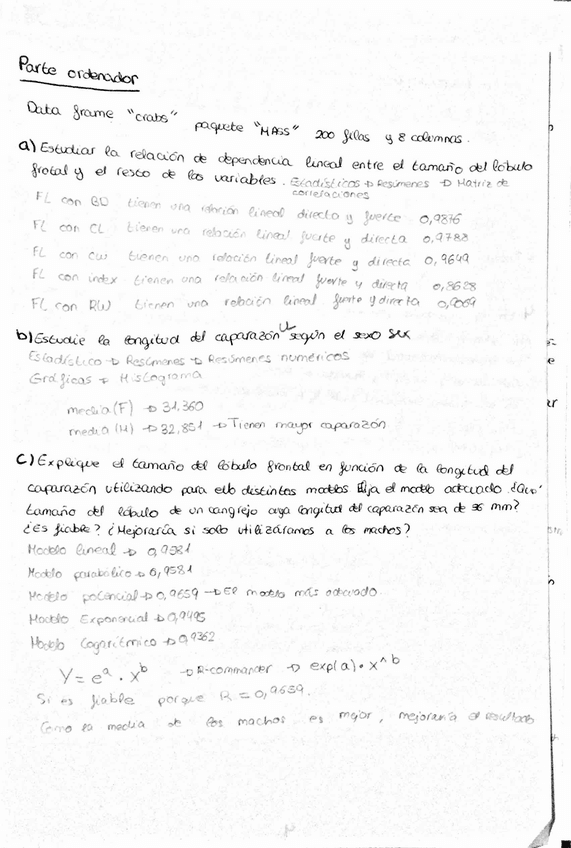 Parte ordenador
Data frame "crabs" paquete "MASS" 200 filas y 8 columnas.
a) Estudiar la relación de dependencia lineal entre el tamaño del lóbulo
frotal y el resto de las variables. Estadísticos → Resúmenes → Matriz de
correlaciones
FL con BD tienen una relación lineal directo y fuerte 0,9876
FL con CL tienen una relación lineal fuerte y directa 0,9788
FL con CW tienen una relación lineal fuerte y directa 0,9649
FL con index tienen una relación lineal fuerte y directa 0,8628
FL con RW tienen una relación lineal fuerte y directa 0,9069
b) Estudie la longitud del caparazón CL según el sexo sex
Estadístico → Resúmenes → Resúmenes numéricos
Gráficas → Histograma
media (F) → 31,360
media (M) → 32,851 → Tienen mayor caparazón
c) Explique el tamaño del lóbulo frontal en función de la longitud del
caparazón utilizando para ello distintos modelos. Elija el modelo adecuado. ¿Qué
tamaño del lóbulo de un cangrejo cuya longitud del caparazón sea de 36 mm?
¿Es fiable? ¿Mejoraría si solo utilizáramos a los machos?
Modelo lineal → 0,9581
Modelo parabólico → 0,9581
Modelo potencial → 0,9659 → El modelo más adecuado
Modelo Exponencial → 0,9495
Modelo Logarítmico → 0,9362
Y = e^a · x^b → R-commander → exp(a) * x ^ b
Si es fiable porque R = 0,9659.
Como la media de los machos es mejor, mejoraría el resultado